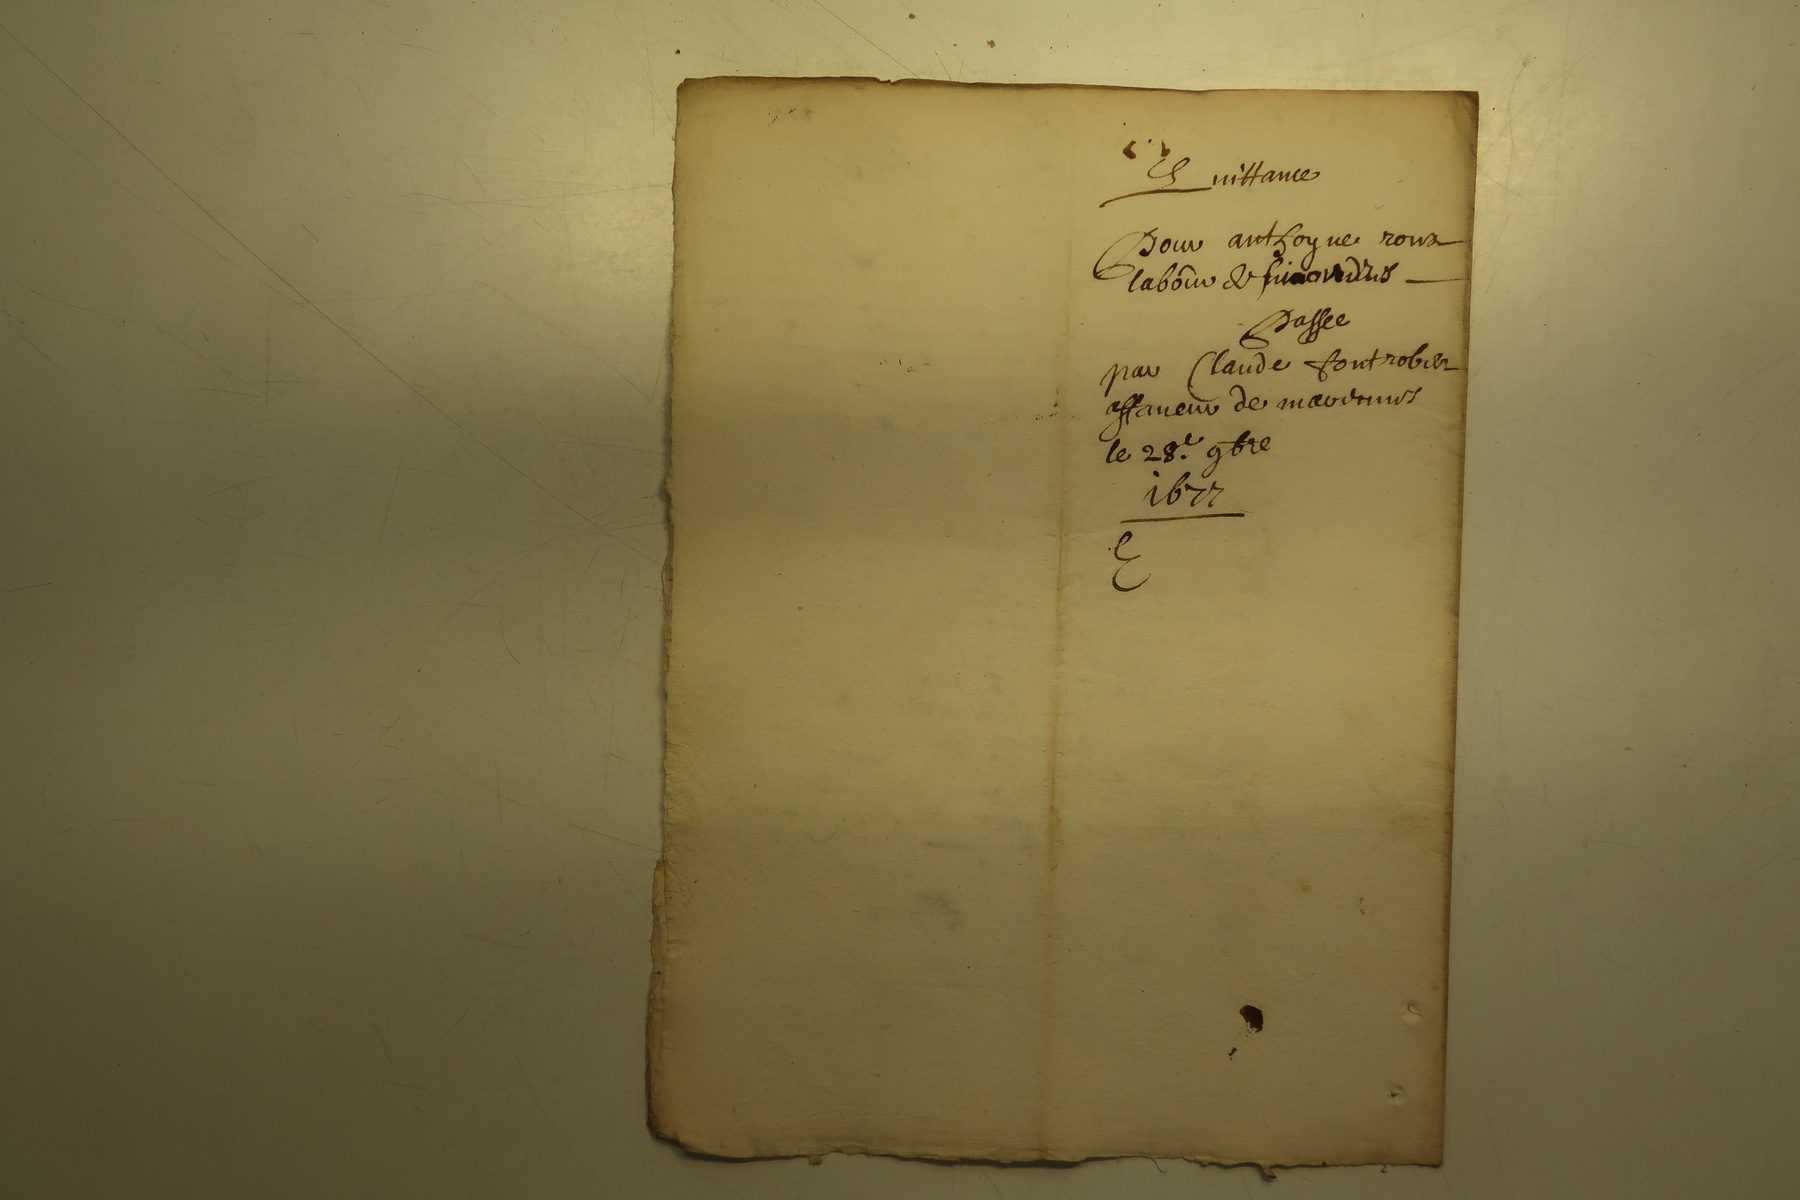 Quittance
Pour anthoyne roux
labour de
Passee
par Claude fontrobert
affaneur de
le 28.e 9bre
1677